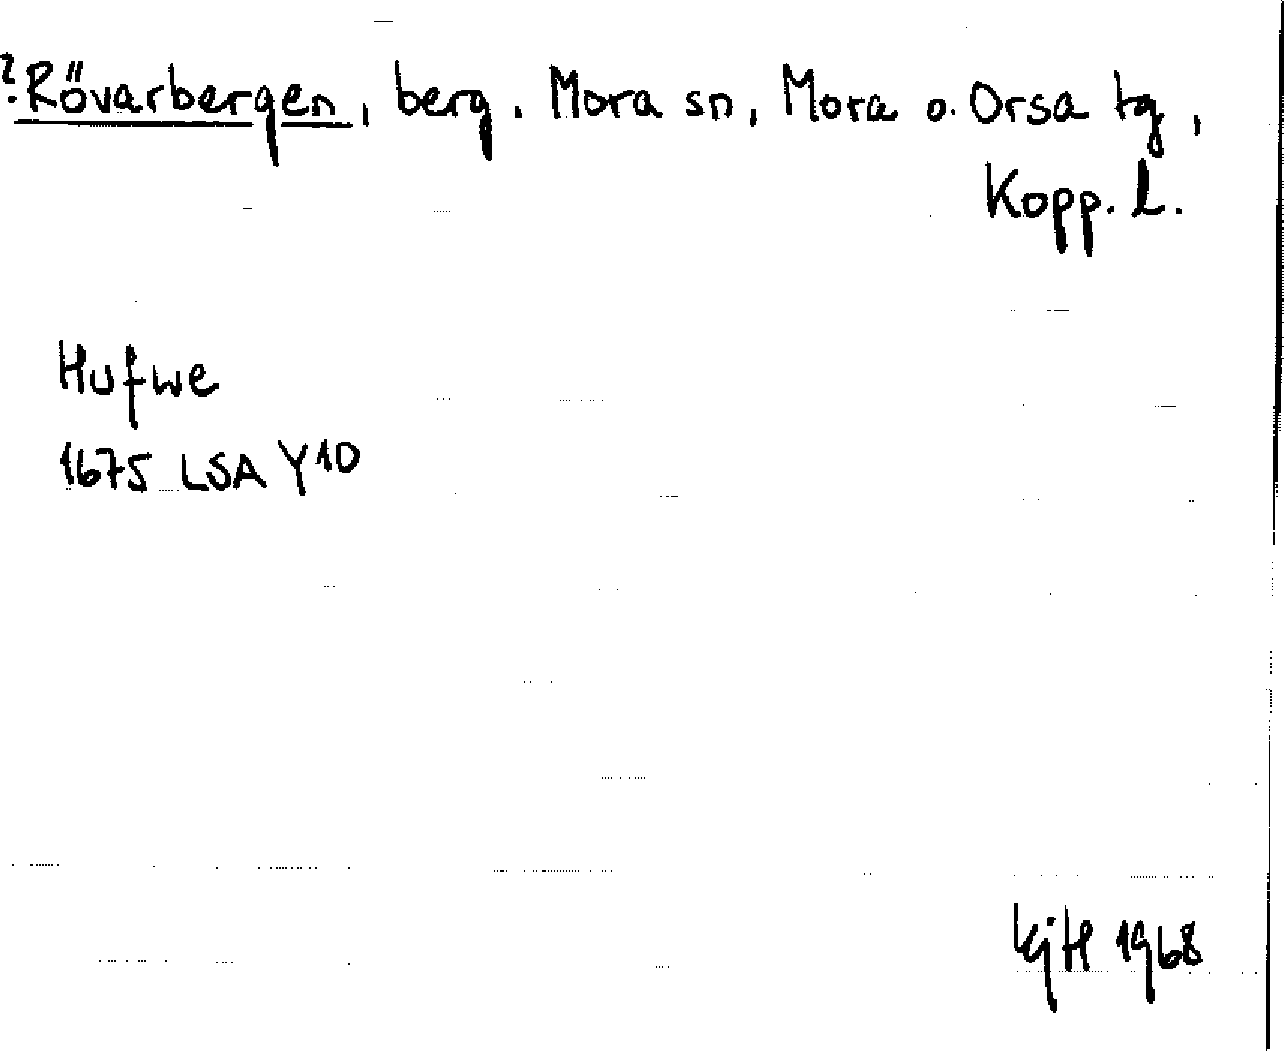 ?Rövarbergen, berg. Mora sn, Mora o. Orsa tg,
Kopp. l.
Hufwe
1675 LSA Y10
KjH 1968